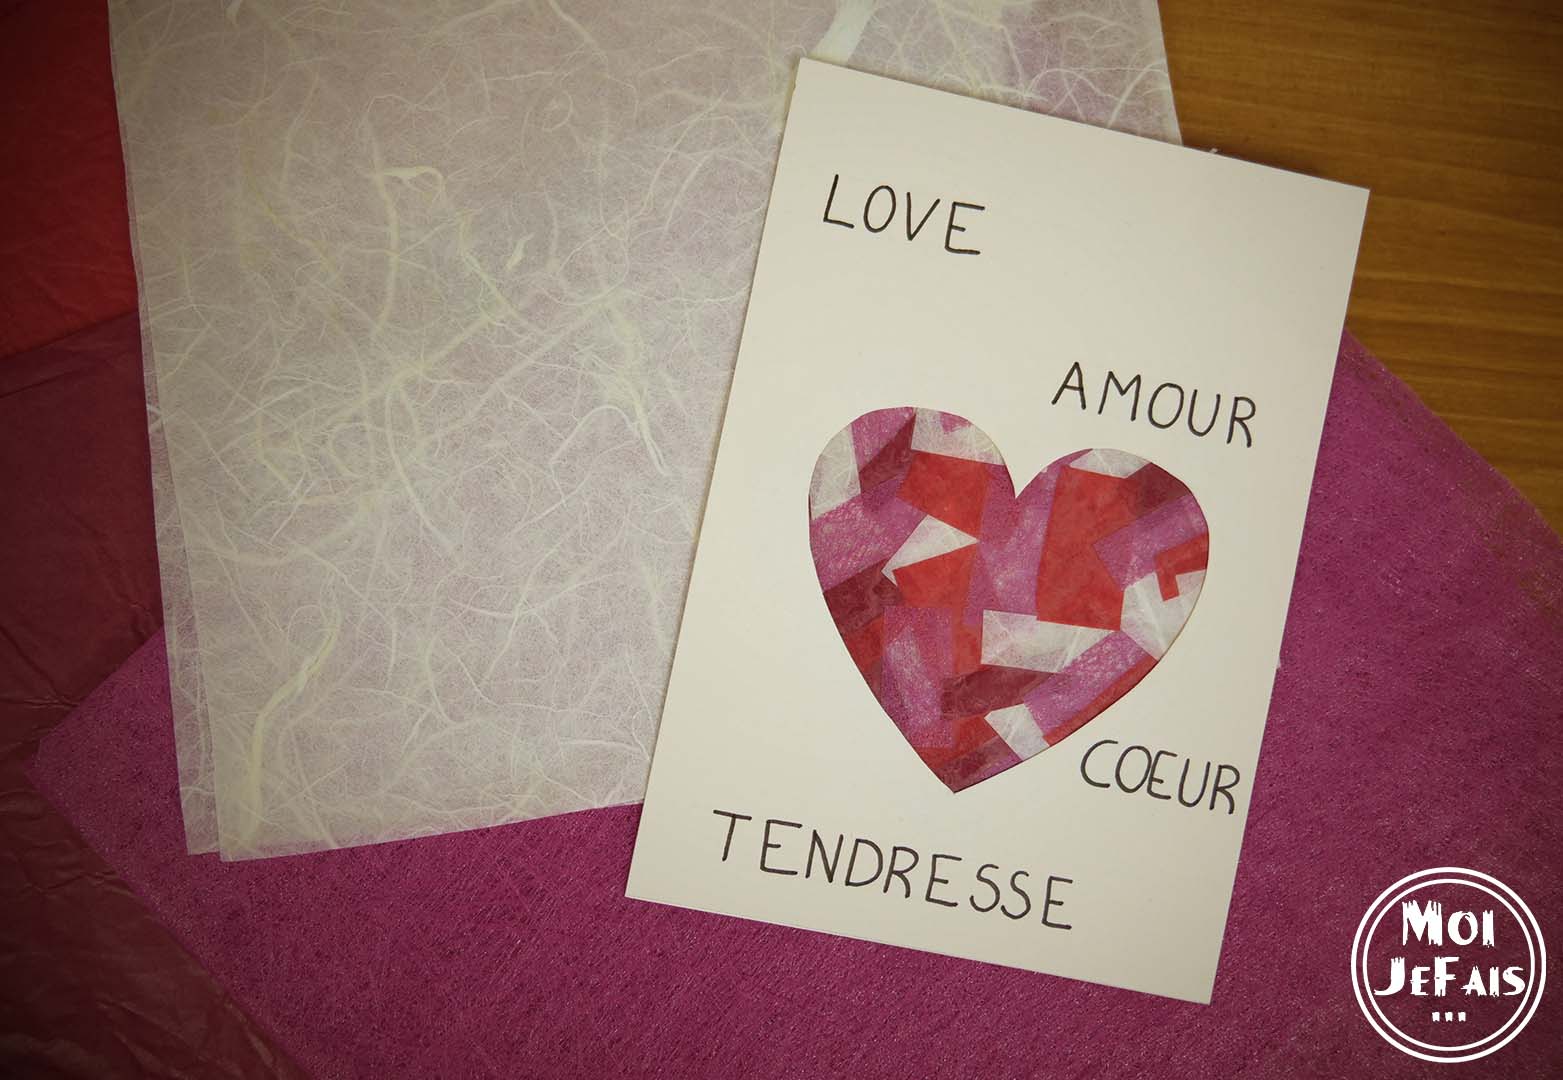 LOVE
AMOUR
COEUR
TENDRESSE
MOI
JEFAIS
...